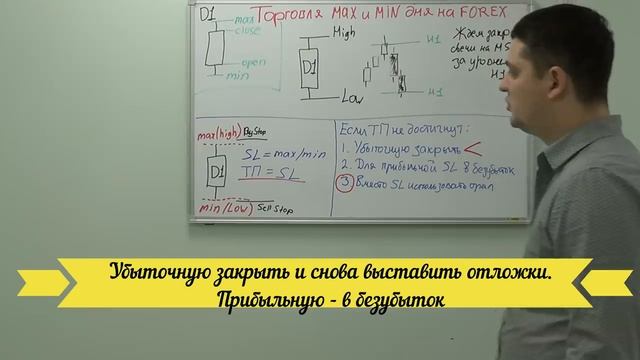 Торговля MAX и MIN дня на FOREX
D1
max
close
open
min
High
D1
Low
H1
H1
Ждем закр
свечи на M5
за уровнем
H1
max(high) Buy Stop
D1
SL = max/min
ТП = SL
min/(Low) Sell Stop
Если ТП не достигнут:
1. Убыточную закрыть
2. Для прибыльной SL в безубыток
3 Вместо SL использовать
Убыточную закрыть и снова выставить отложки.
Прибыльную - в безубыток